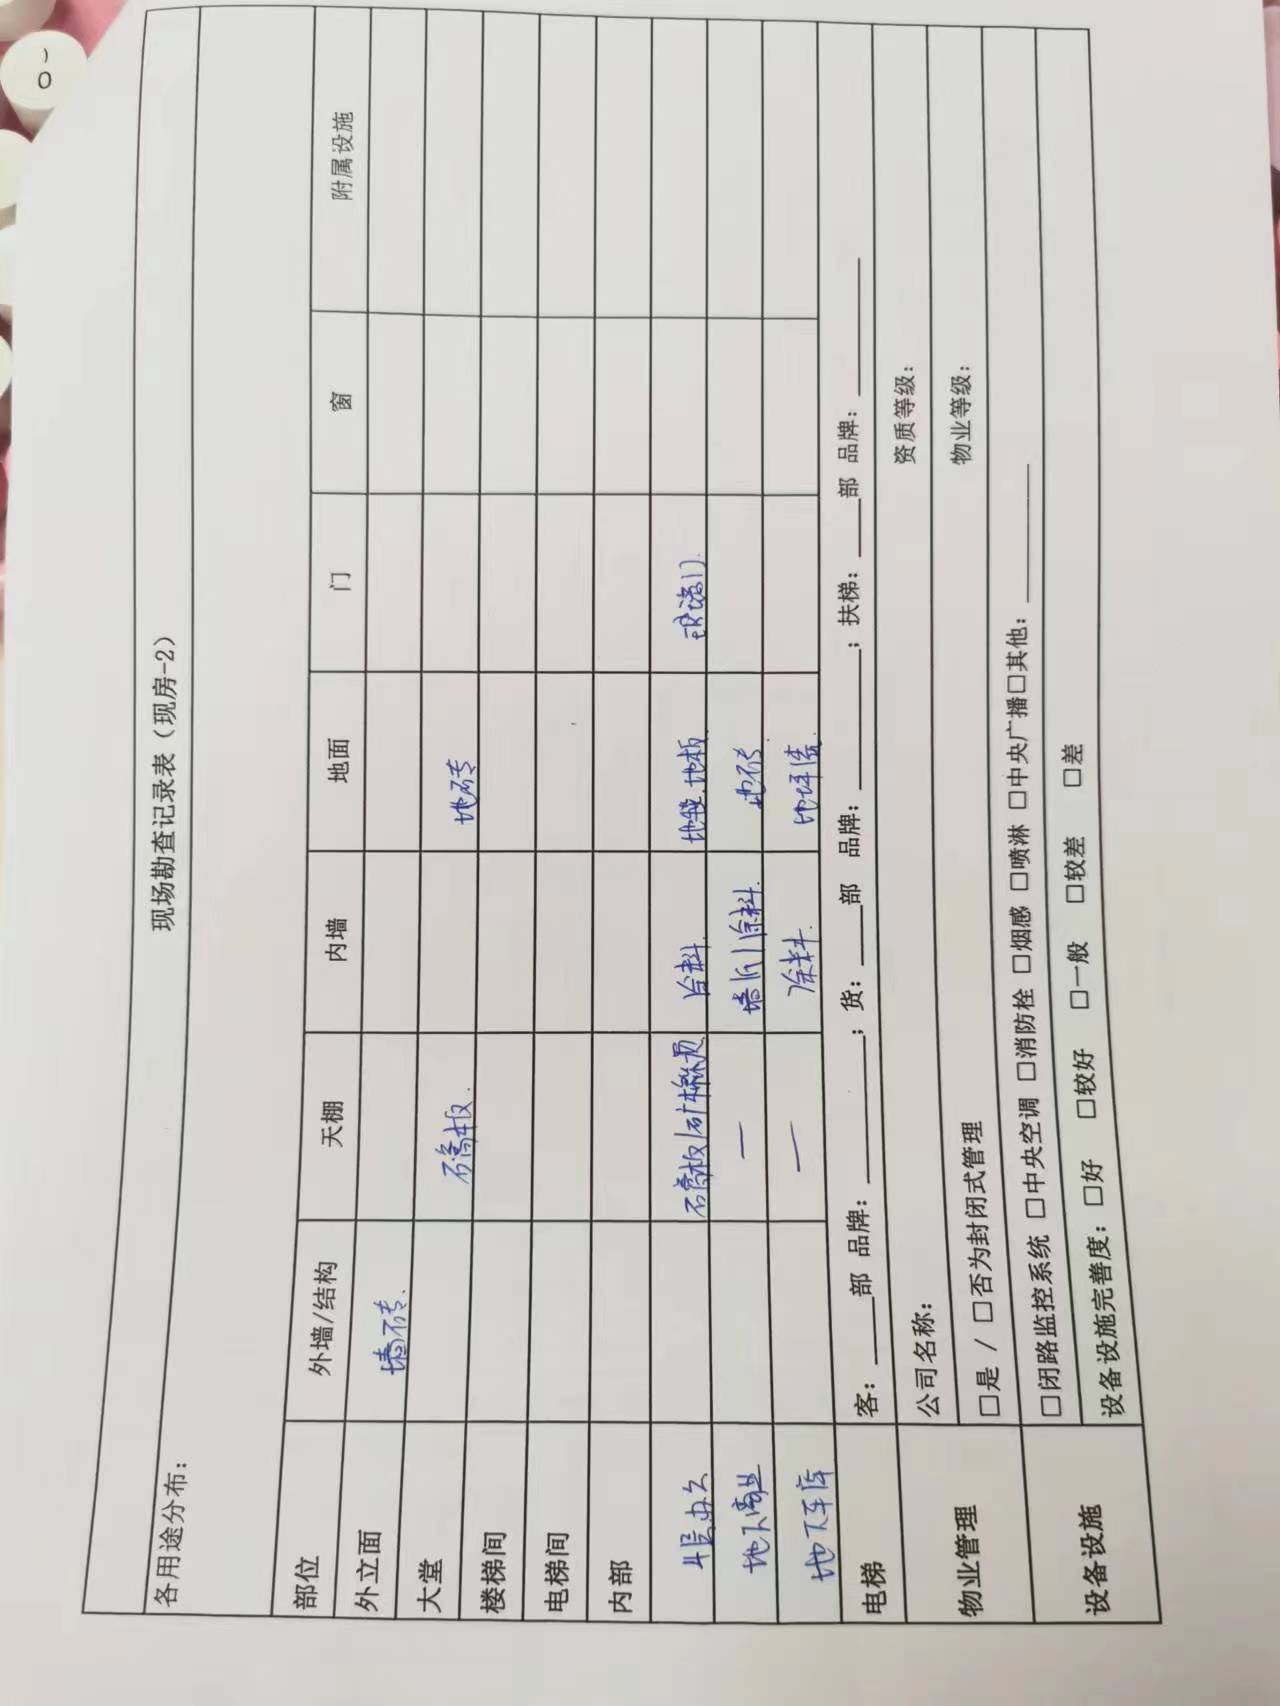 现场勘查记录表（现房-2）
各用途分布：
部位 外墙/结构 天棚 内墙 地面 门 窗 附属设施
外立面 墙砖.
大堂 石膏板. 地砖
楼梯间
电梯间
内部
石膏板/矿棉 涂料. 地毯.地板. 玻璃门.
地下商业 — 墙 /涂料. 地砖
地下车库 — 涂料. 地坪漆.
电梯 客：____部 品牌：________；货：____部 品牌：________；扶梯：____部 品牌：________
物业管理 公司名称： 资质等级：
□是 / □否为封闭式管理 物业等级：
设备设施 □闭路监控系统 □中央空调 □消防栓 □烟感 □喷淋 □中央广播□其他：________
设备设施完善度：□好 □较好 □一般 □较差 □差